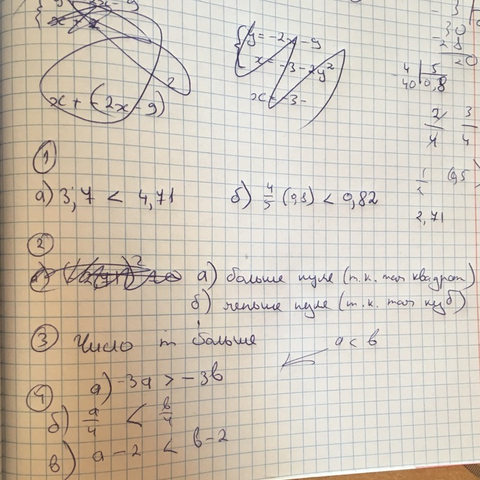 y = -2x - 9
x = -3 - 2y²
x = -3 -
x + (-2x - 9)²
4 | 5
40 | 0,8
①
а) 3,7 < 4,71 б) 4/5 (0,8) < 0,82
2,71
②
а) больше нуля (т.к. там квадрат)
б) меньше нуля (т.к. там куб)
③ Число m больше
a < b
④ а) -3a > -3b
б) a/4 < b/4
в) a - 2 < b - 2